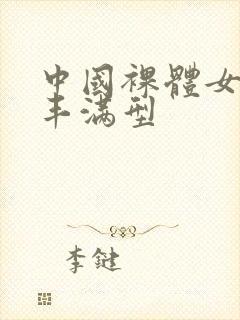 中國裸體女
丰满型
李鍵